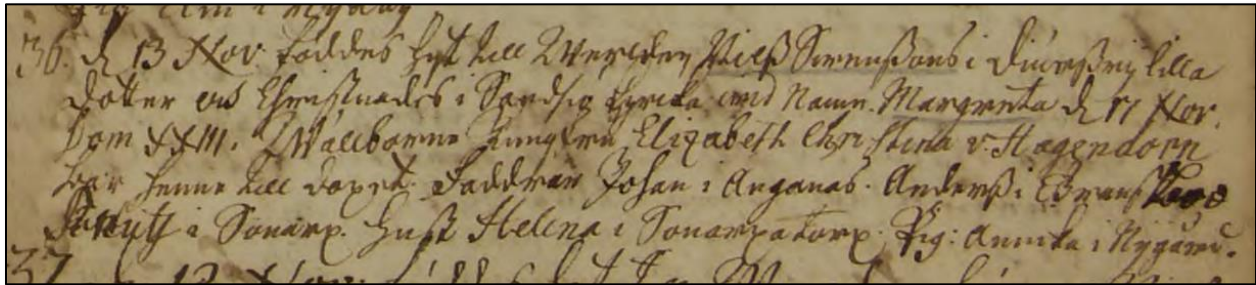 i Nygård
36. d 13 Nov. föddes hijt till Werlden Nilß Swenßons i Diuraßrij lilla
dotter och Christnades i Sandsiö kyrka med Namn Margreta d 17 Nov.
Dom XXIII. Wälborne Jungfru Elizabeth Christina v. Hagendorn
bar henne till dopet. Faddrar Johan i Änganäs. Anderß i
i Sonarp. Hust Helena i Sonarpatorp. Pig: Annika i Nygård.
37 12 Nov.